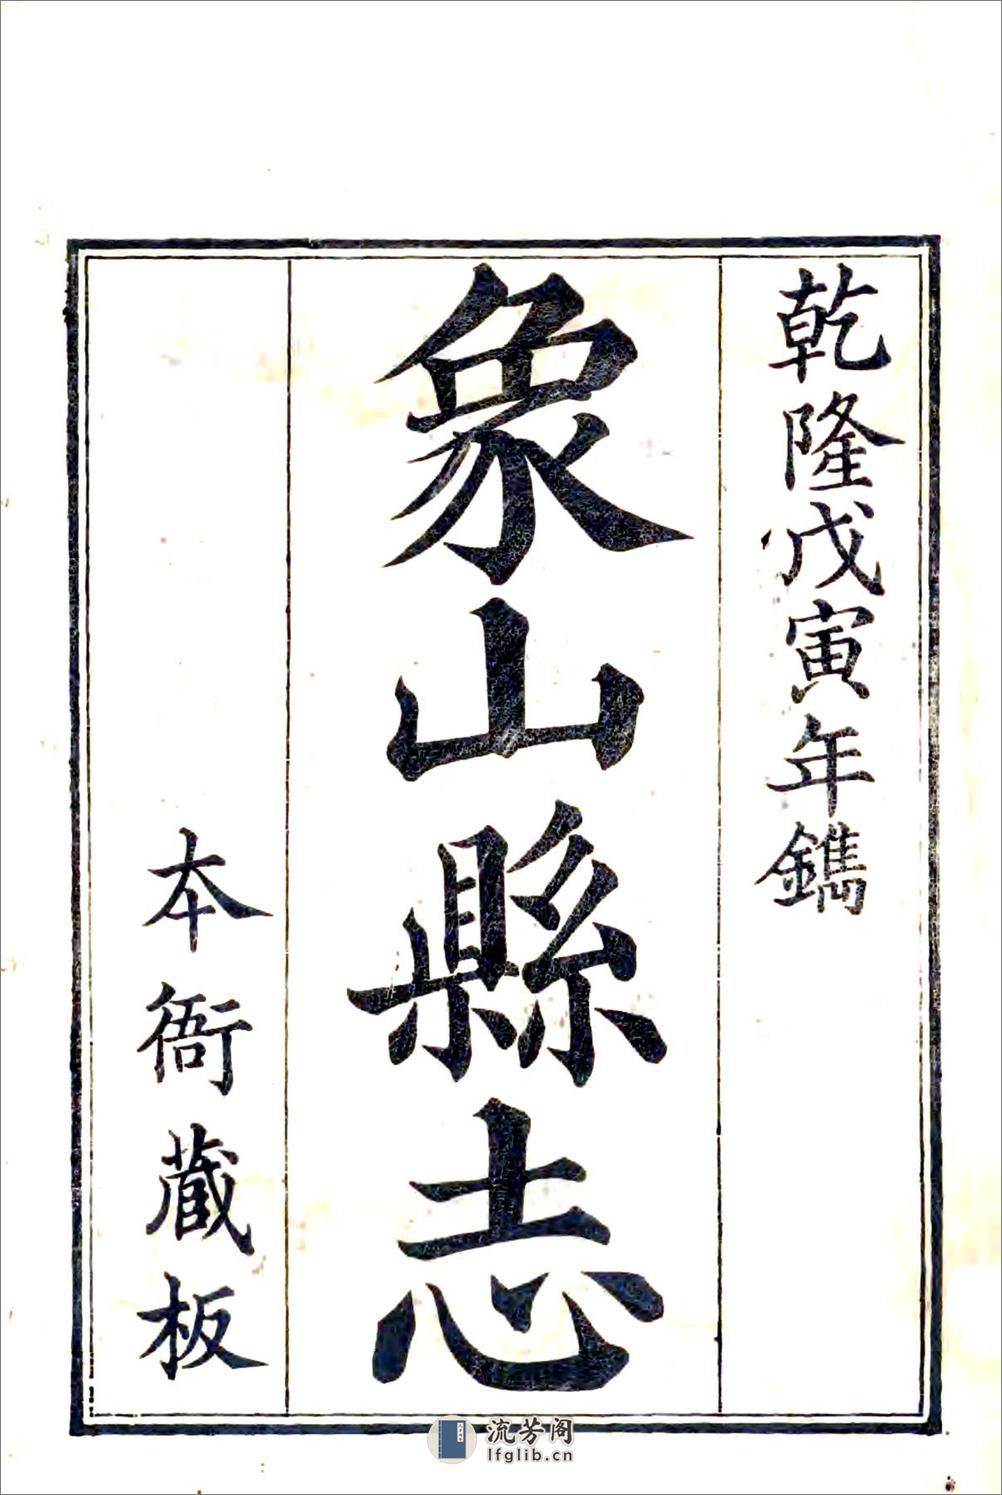 乾隆戊寅年鐫
象山縣志
本衙藏板
流芳阁
lfglib.cn